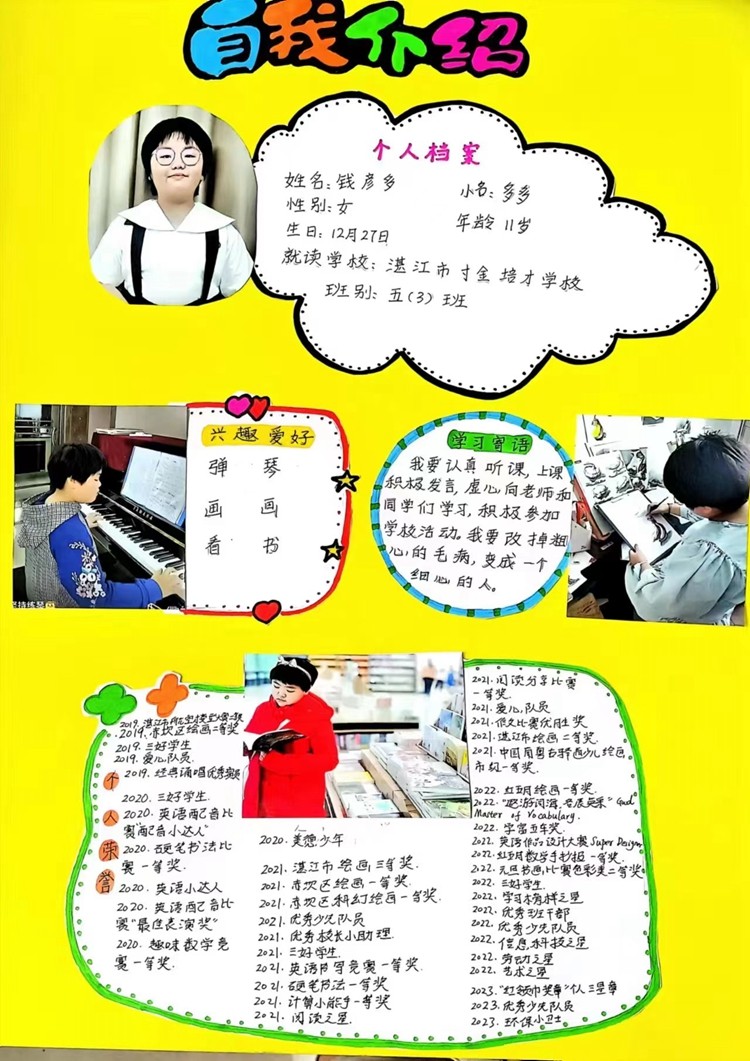 自我介绍
个人档案
姓名:钱彦多
小名:多多
性别:女
年龄 11岁
生日:12月27日
就读学校:湛江市寸金培才学校
班别:五(3)班
兴趣爱好
弹琴
画画
看书
学习寄语
我要认真听课,上课
积极发言,虚心向老师和
同学们学习,积极参加
学校活动。我要改掉粗
心的毛病,变成一个
细心的人。
YAMAHA
个人荣誉
2019.湛江市
2019.赤坎区绘画二等奖
2019.三好学生
2019.爱心队员
2019.经典诵唱优秀
2020.三好学生
2020.英语配音比
赛“配音小达人”
2020.硬笔书法比
赛一等奖
2020.英语小达人
2020.英语配音比
赛“最佳表演奖”
2020.趣味数学竞
赛一等奖.
2020.美德少年
2021.湛江市绘画三等奖.
2021.赤坎区绘画一等奖.
2021.赤坎区科幻绘画一等奖.
2021.优秀少先队员
2021.优秀校长小助理.
2021.三好学生
2021.英语书写竞赛一等奖.
2021.硬笔书法一等奖
2021.计算小能手一等奖
2021.阅读之星.
2021.阅读分享比赛
一等奖.
2021.爱心队员
2021.作文比赛优胜奖
2021.湛江市绘画二等奖.
2021.中国周粤古驿道少儿绘画
市级一等奖.
2022.红玥绘画一等奖.
2022. Good
Master of Vocabulary.
2022.学富五车奖.
2022.英语作品设计大赛Super Designer
2022.红玥数学手抄报一等奖.
2022.元旦书画比赛色彩类二等奖
2022.三好学生.
2022.学习榜样之星
2022.优秀班干部
2022.优秀少先队员
2022.信息科技之星
2022.劳动之星
2022.艺术之星
2023.“红领巾奖章”三星章
2023.优秀少先队员
2023.环保小卫士